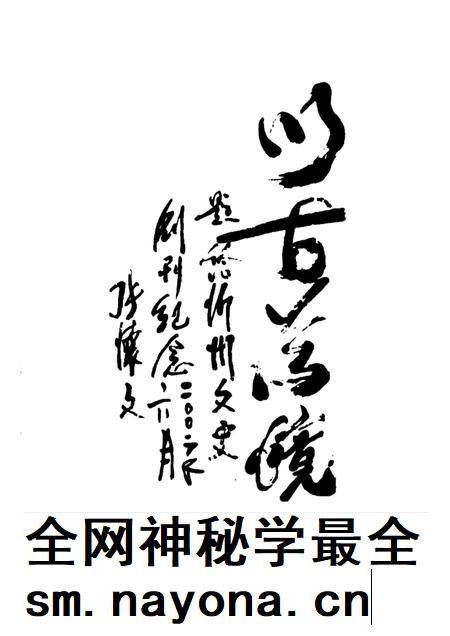 以古为镜
題忻州文史
創刊紀念二〇〇年六月
张懷文
全网神秘学最全
sm.nayona.cn